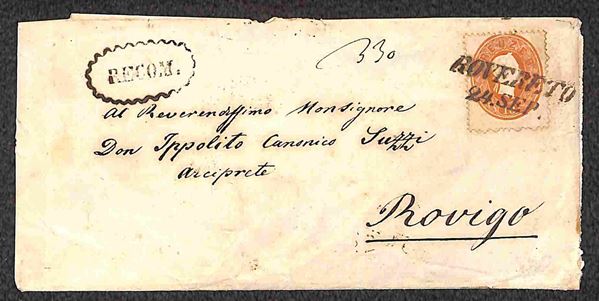 330
RECOM.
ROVERETO
24. SEP.
Al Reverendissimo Monsignore
Don Ippolito Canonico Suzzi
Arciprete
Rovigo